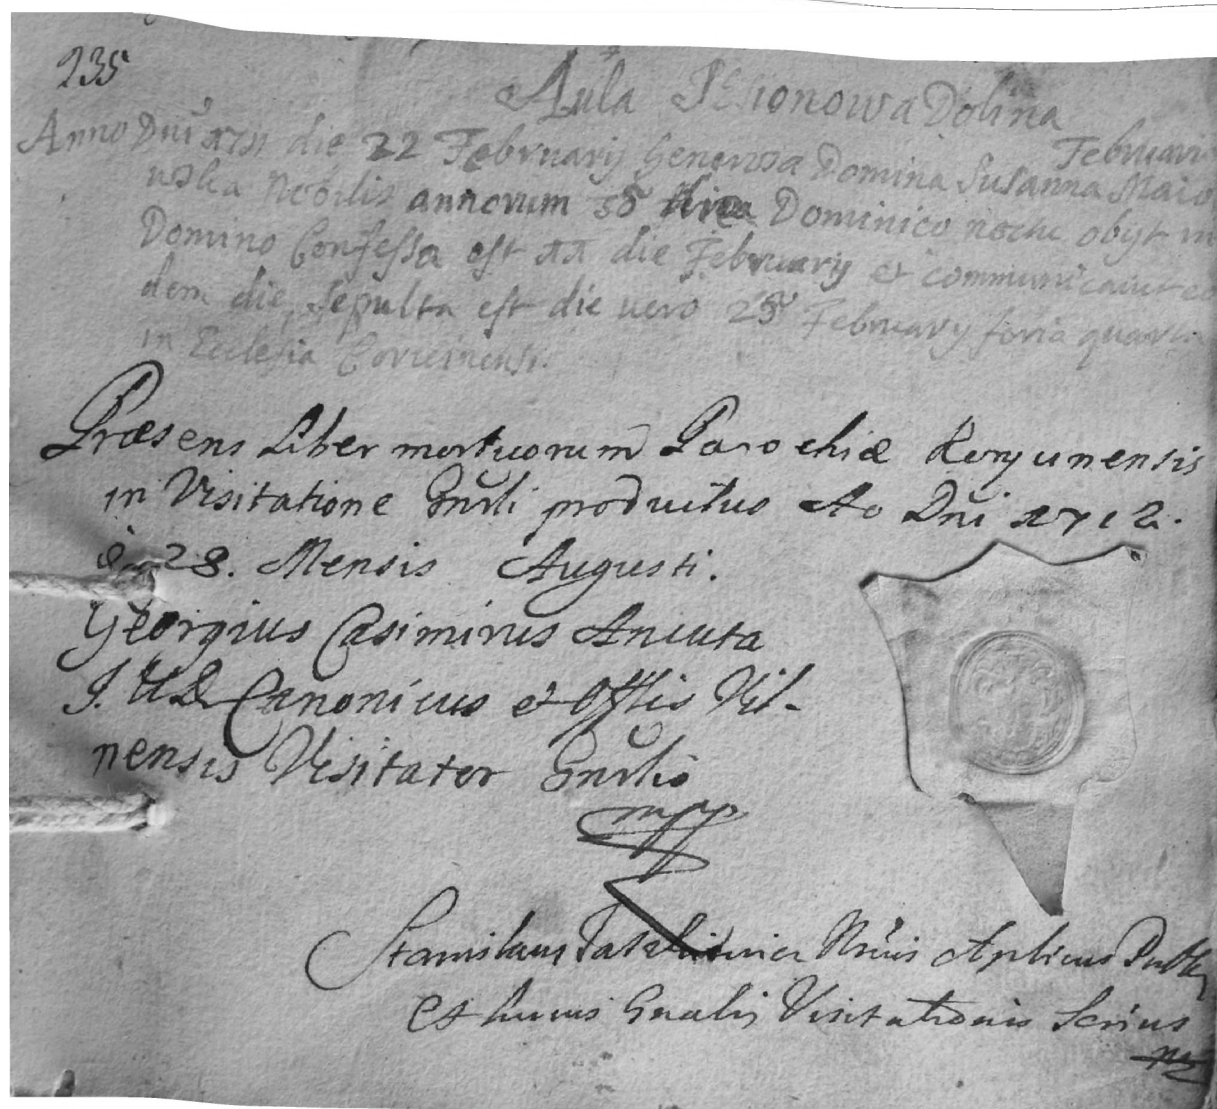 235
Aula Jesionowa Dolina
Februari
Anno Dni 1751 die 22 February Generosa Domina Susanna Maio
uska Nobilis annorum 56 Dominico noctu obyt in
Domino Confessa est 22 die February et communicavit eo
dem die, Sepulta est die vero 25 February feria quarta
in Ecclesia
Præsens Liber mortuorum Parochiæ Korycinensis
in Visitatione Gnrli productus Ao Dni 1712.
d. 28. Mensis Augusti.
Georgius Casimirus Ancuta
J.U.D. Canonicus et Offlis Vil-
nensis Visitator Gnrlis
mpp
Stanislaus Nrius Aplicus Publ
et huius Gnalis Visitationis Scrius
mp